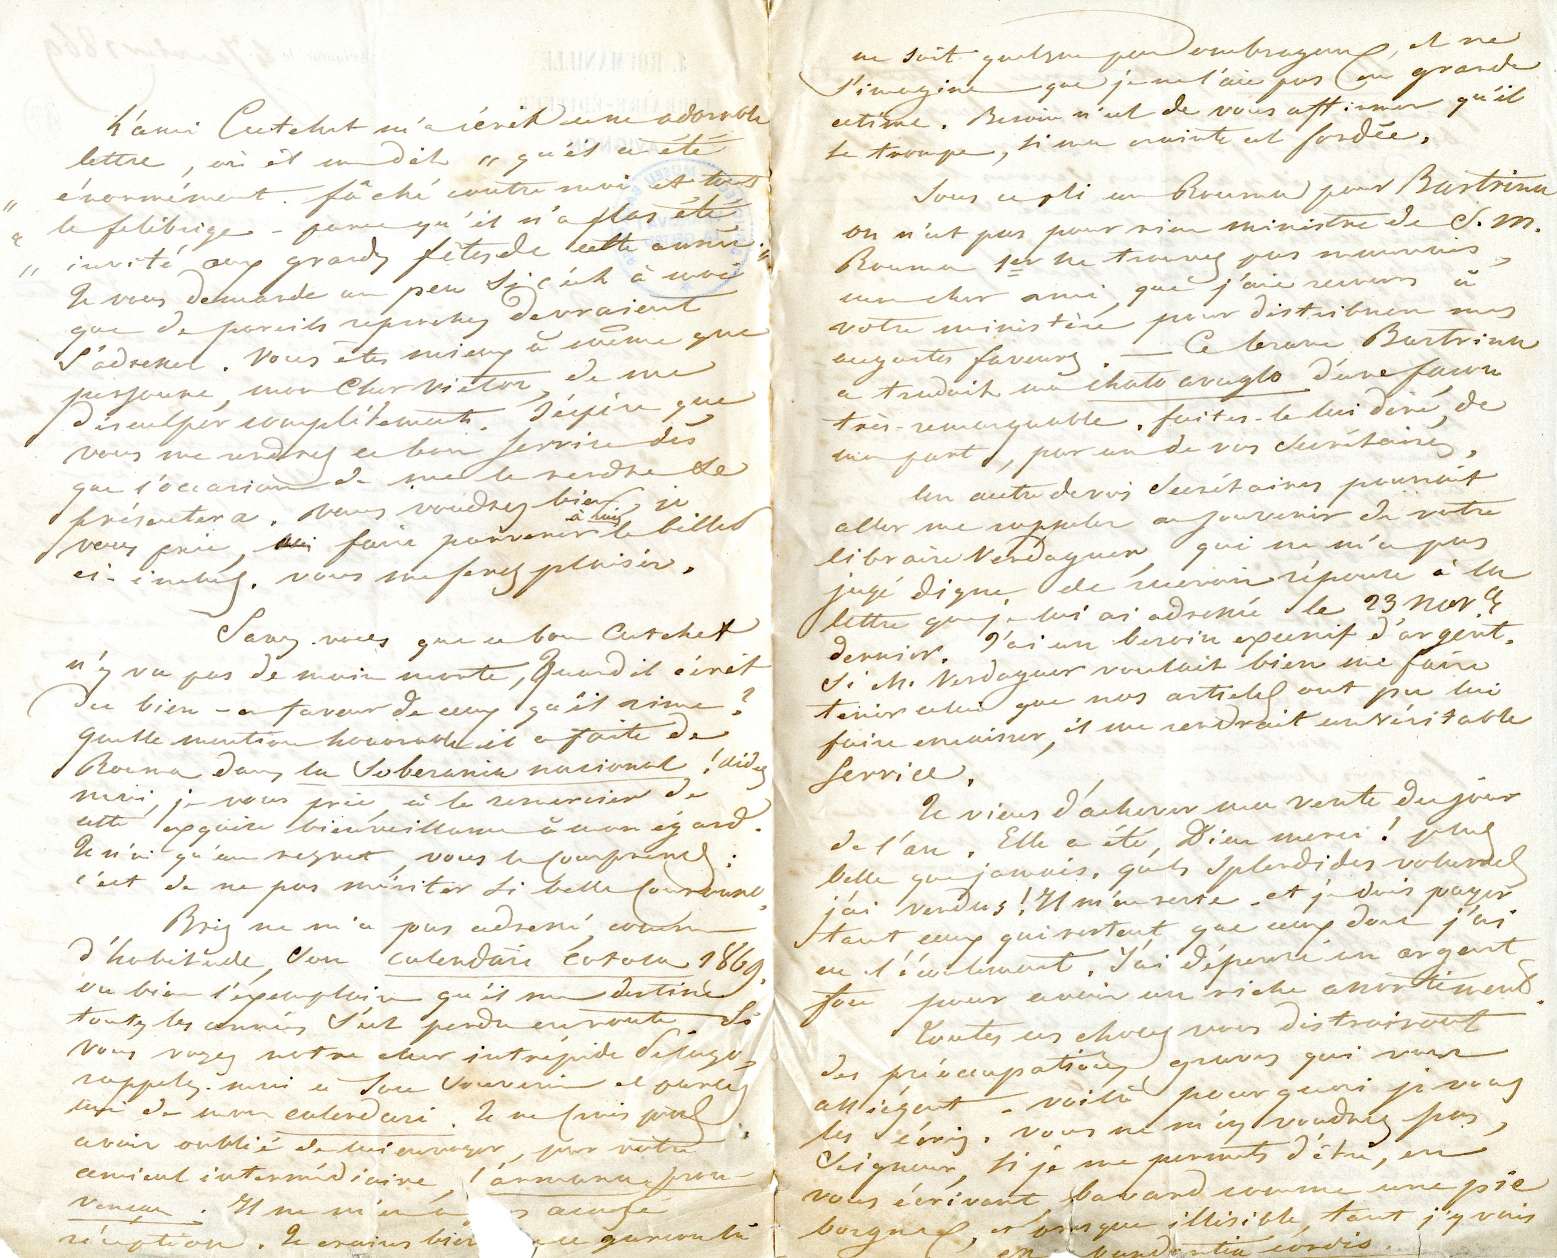 L'ami Cutchet m'a écrit une adorable
lettre, où il me dit " qu'il a été
" énormément fâché contre moi et tout
" le felibrige - parce qu'il n'a plas été
" invité aux grandes fêtes de cette année. "
Je vous demande un peu si c'est à moi
que de pareils reproches devraient
s'adresser. Vous êtes mieux à même que
personne, mon cher Victor, de me
disculper complètement. J'espère que
vous me rendrez ce bon service dès
que l'occasion de me le rendre se
présentera. Vous voudrez bien, je
vous prie, faire parvenir à lui le billet
ci-inclus. Vous me ferez plaisir.
Savez-vous que ce bon Cutchet
n'y va pas de main morte, quand il écrit
du bien en faveur de ceux qu'il aime ?
Quelle mention honorable il a faite de
Rouma dans la Soberania nacional ! Aidez
moi, je vous prie, à le remercier de
cette exquise bienveillance à mon égard.
Je n'ai qu'un regret, vous le comprenez :
c'est de ne pas mériter si belle couronne.
Briz ne m'a pas adressé, comme
d'habitude, son calendari catala 1869.
ou bien l'exemplaire qu'il me destine
toutes les années s'est perdu en route. Si
vous voyez notre cher intrépide Pelayo,
rappelez-moi à son souvenir et parlez
lui de mon calendari. Je ne crois pas
avoir oublié de lui envoyer, par votre
amical intermédiaire, l'armana prou-
vençau. Il ne m'en a pas accusé
réception. Je crains bien que ce garçon là
ne soit quelque peu ombrageux, et ne
s'imagine que je ne l'aie pas en grande
estime. Besoin n'est de vous affirmer qu'il
se trompe, si ma crainte est fondée.
Sous ce pli un Rouma pour Bartrina
on n'est pas pour rien ministre de S. M.
Rouma 1er Ne trouvez pas mauvais,
mon cher ami, que j'aie recours à
votre ministère pour distribuer mes
augustes faveurs. — Ce brave Bartrina
a traduit ma chato avuglo d'une façon
très-remarquable. faites-le lui dire, de
ma part, par un de vos secrétaires.
Un autre de vos secrétaires pourrait
aller me rappeler au souvenir de votre
libraire Verdaguer qui ne m'a pas
jugé digne de recevoir réponse à la
lettre que je lui ai adressée le 23 Nov.bre
dernier. J'ai un besoin excessif d'argent.
Si M. Verdaguer voulait bien me faire
tenir celui que nos articles ont pu lui
faire encaisser, il me rendrait un véritable
service.
Je viens d'achever ma vente du jour
de l'an. Elle a été, Dieu merci ! plus
belle que jamais. quels splendides volumes
j'ai vendus ! Il m'en reste - et je dois payer
tant ceux qui restent que ceux dont j'ai
eu l'écoulement. J'ai dépensé un argent
fou pour avoir un riche assortiment.
Toutes ces choses vous distrairont
des préoccupations graves qui vous
assiégent - voilà pourquoi je vous
les écris. Vous ne m'en voudrez pas,
Seigneur, si je me permets d'être, en
vous écrivant, bavard comme une pie
borgne, et presque illisible, tant j'y vais
en abundantia cordis.